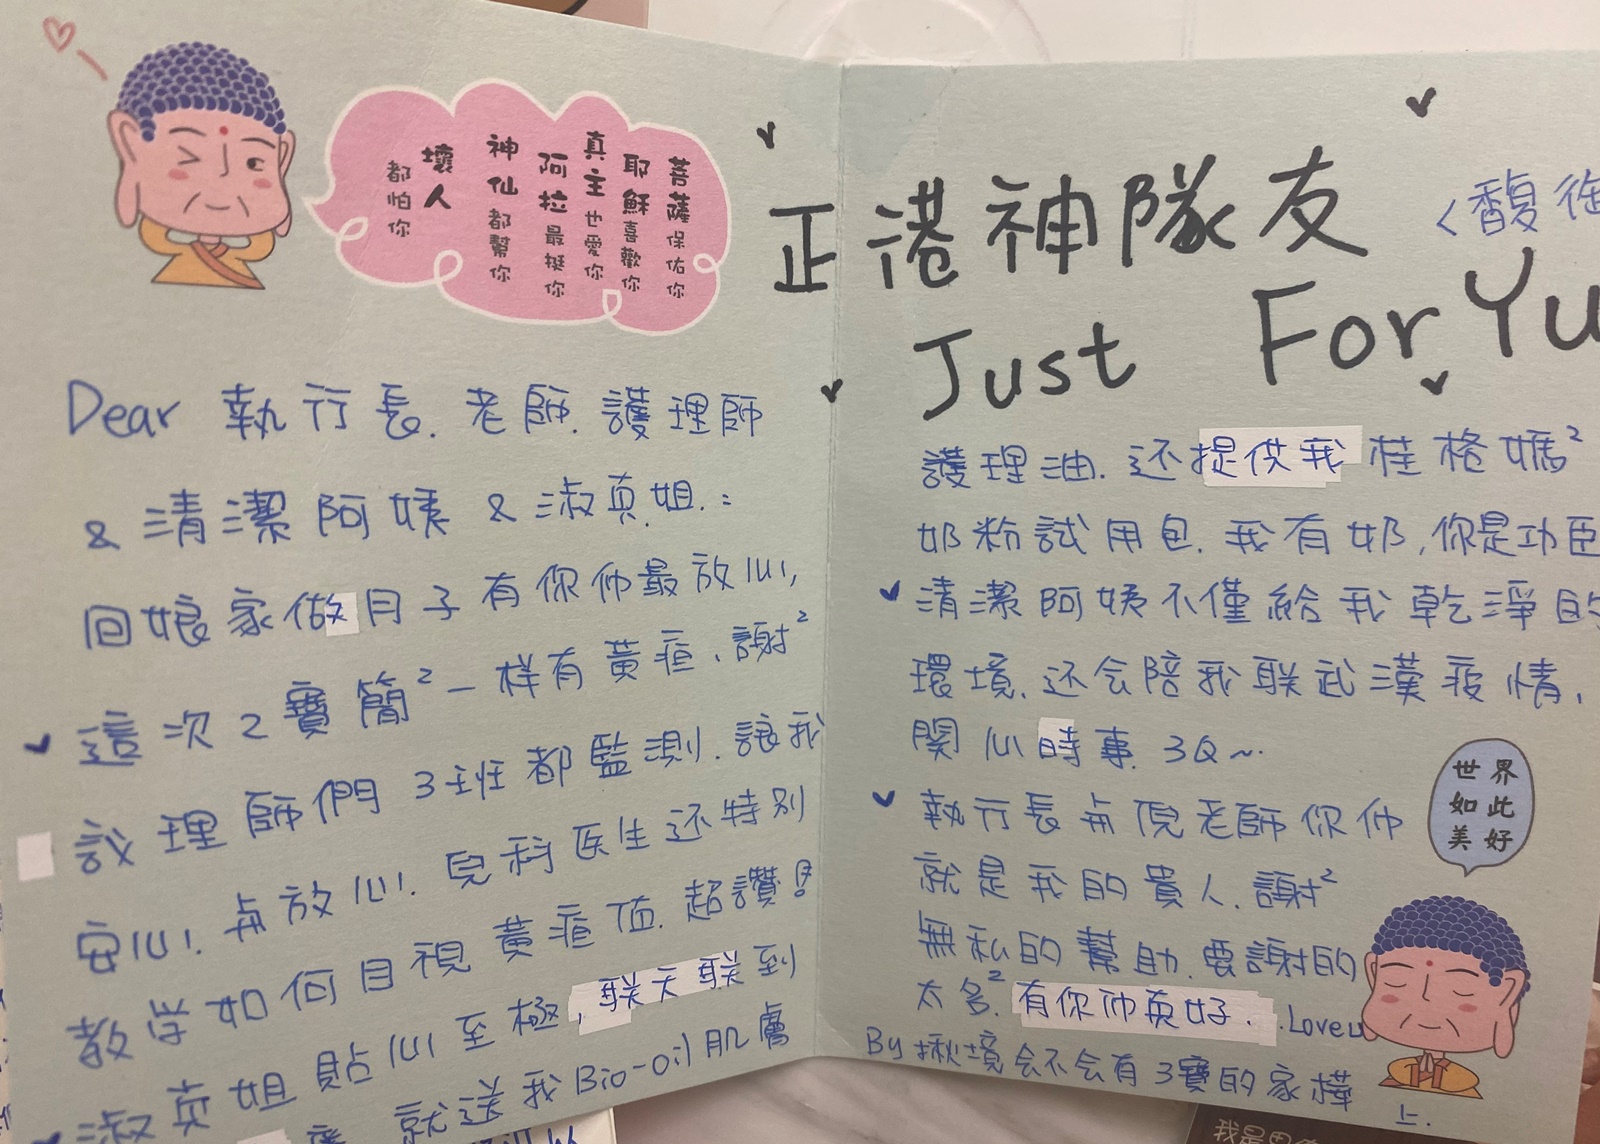 菩薩保佑你
耶穌喜歡你
真主也愛你
阿拉最挺你
神仙都幫你
壞人都怕你
Dear 執行長.老師.護理師
& 清潔阿姨 & 淑真姐.:
回娘家做月子有你仲最放心,
這次2寶簡²一样有黃疸.謝²
護理師們 3班都監測.讓我
安心.再放心.兒科医生还特別
教学如何目視黃疸值.超讚!
淑真姐貼心至極,联天联到
就送我Bio-oil肌膚
正港神隊友
<馥御
Just For Yu
護理油.还提供我桂格媽²
奶粉試用包.我有奶,你是功臣
清潔阿姨不僅給我乾淨的
環境.还会陪我联武漢疫情,
関心時事.3Q~.
執行長再倪老師你仲
就是我的貴人.謝²
無私的幫助.要謝的
太多²有你仲真好..Loveu
By 揪境会不会有3寶的家樺
上.
世界
如此
美好